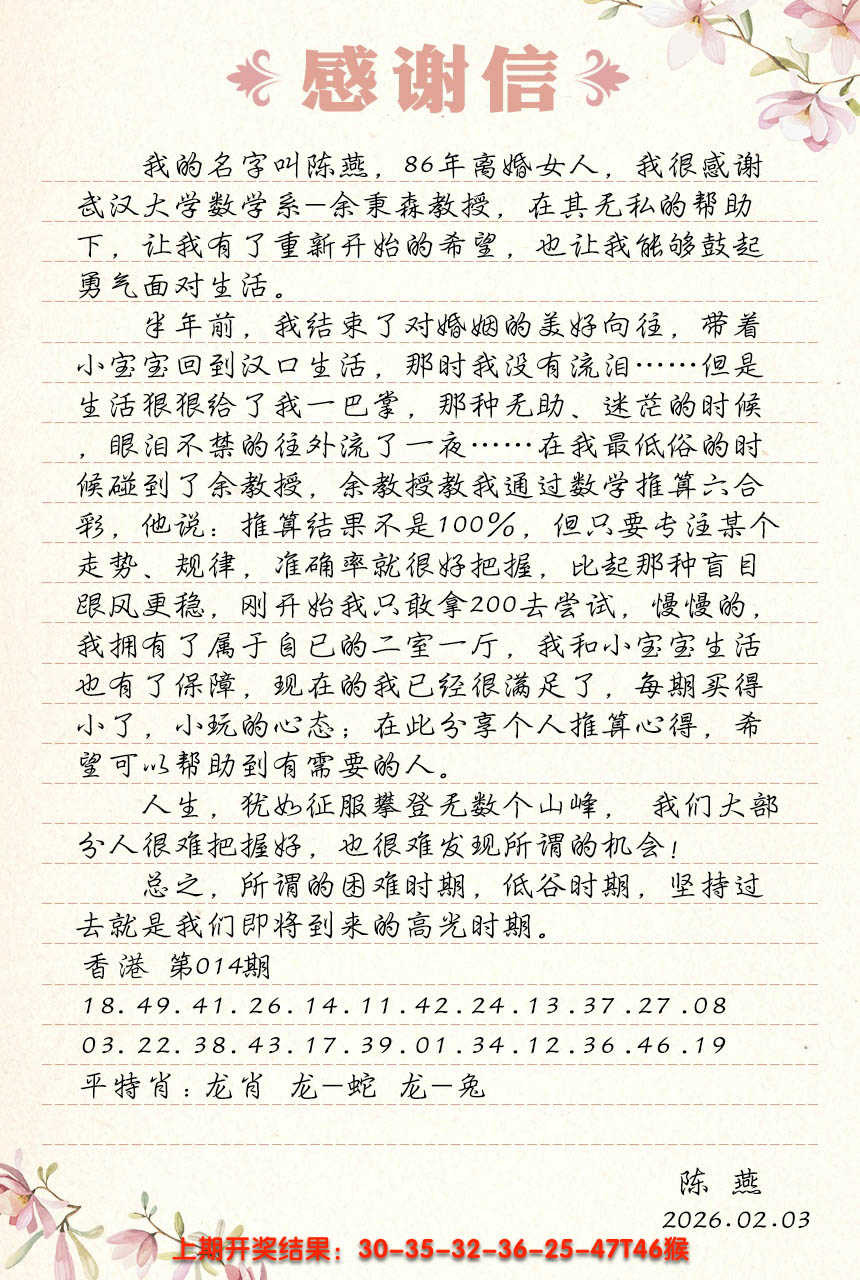 感谢信
我的名字叫陈燕，86年离婚女人，我很感谢
武汉大学数学系—余秉森教授，在其无私的帮助
下，让我有了重新开始的希望，也让我能够鼓起
勇气面对生活。
半年前，我结束了对婚姻的美好向往，带着
小宝宝回到汉口生活，那时我没有流泪……但是
生活狠狠给了我一巴掌，那种无助、迷茫的时候
，眼泪不禁的往外流了一夜……在我最低俗的时
候碰到了余教授，余教授教我通过数学推算六合
彩，他说：推算结果不是100%，但只要专注某个
走势、规律，准确率就很好把握，比起那种盲目
跟风更稳，刚开始我只敢拿200去尝试，慢慢的，
我拥有了属于自已的二室一厅，我和小宝宝生活
也有了保障，现在的我已经很满足了，每期买得
小了，小玩的心态；在此分享个人推算心得，希
望可以帮助到有需要的人。
人生，犹如征服攀登无数个山峰， 我们大部
分人很难把握好，也很难发现所谓的机会！
总之，所谓的困难时期，低谷时期，坚持过
去就是我们即将到来的高光时期。
香港 第014期
18.49.41.26.14.11.42.24.13.37.27.08
03.22.38.43.17.39.01.34.12.36.46.19
平特肖：龙肖 龙—蛇 龙—兔
陈 燕
2026.02.03
上期开奖结果：30-35-32-36-25-47T46猴